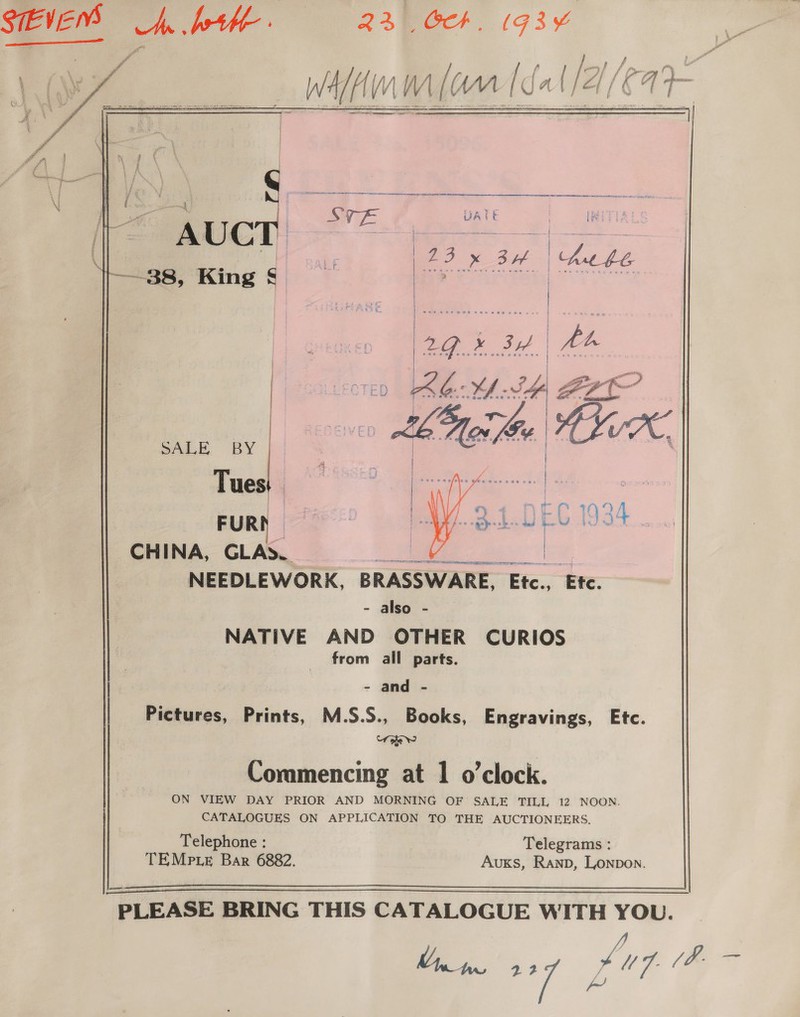 STEVENS 23. Oct. 1934
WA/HMM/
S
AUCT STE DATE INITIALS
38, King S SALE 23 x 34
PURCHASE
CHECKED 29 x 34
COLLECTED 26.XI.34
RECEIVED 26 Nov/34
SALE BY
Tues
FURN PASSED 31 DEC 1934
CHINA, GLAS
NEEDLEWORK, BRASSWARE, Etc., Etc.
- also -
NATIVE AND OTHER CURIOS
from all parts.
- and -
Pictures, Prints, M.S.S., Books, Engravings, Etc.
Commencing at 1 o'clock.
ON VIEW DAY PRIOR AND MORNING OF SALE TILL 12 NOON.
CATALOGUES ON APPLICATION TO THE AUCTIONEERS.
Telephone : Telegrams :
TEMPLE BAR 6882. AUKS, RAND, LONDON.
PLEASE BRING THIS CATALOGUE WITH YOU.
227 £117. 18. -